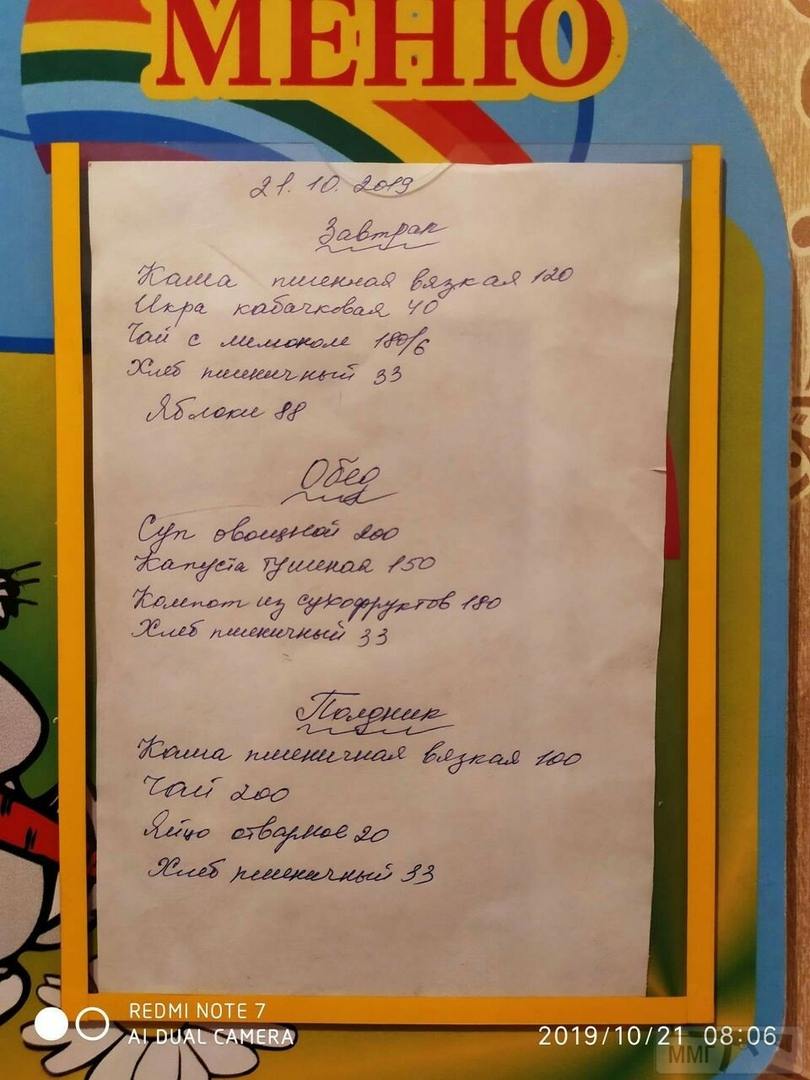 МЕНЮ
21.10.2019
Завтрак
Каша пшенная вязкая 120
Икра кабачковая 40
Чай с лимоном 180/6
Хлеб пшеничный 33
Яблоки 88
Обед
Суп овощной 200
Капуста тушеная 150
Компот из сухофруктов 180
Хлеб пшеничный 33
Полдник
Каша пшеничная вязкая 100
Чай 200
Яйцо отварное 20
Хлеб пшеничный 33
REDMI NOTE 7
AI DUAL CAMERA
2019/10/21 08:06
ММГ